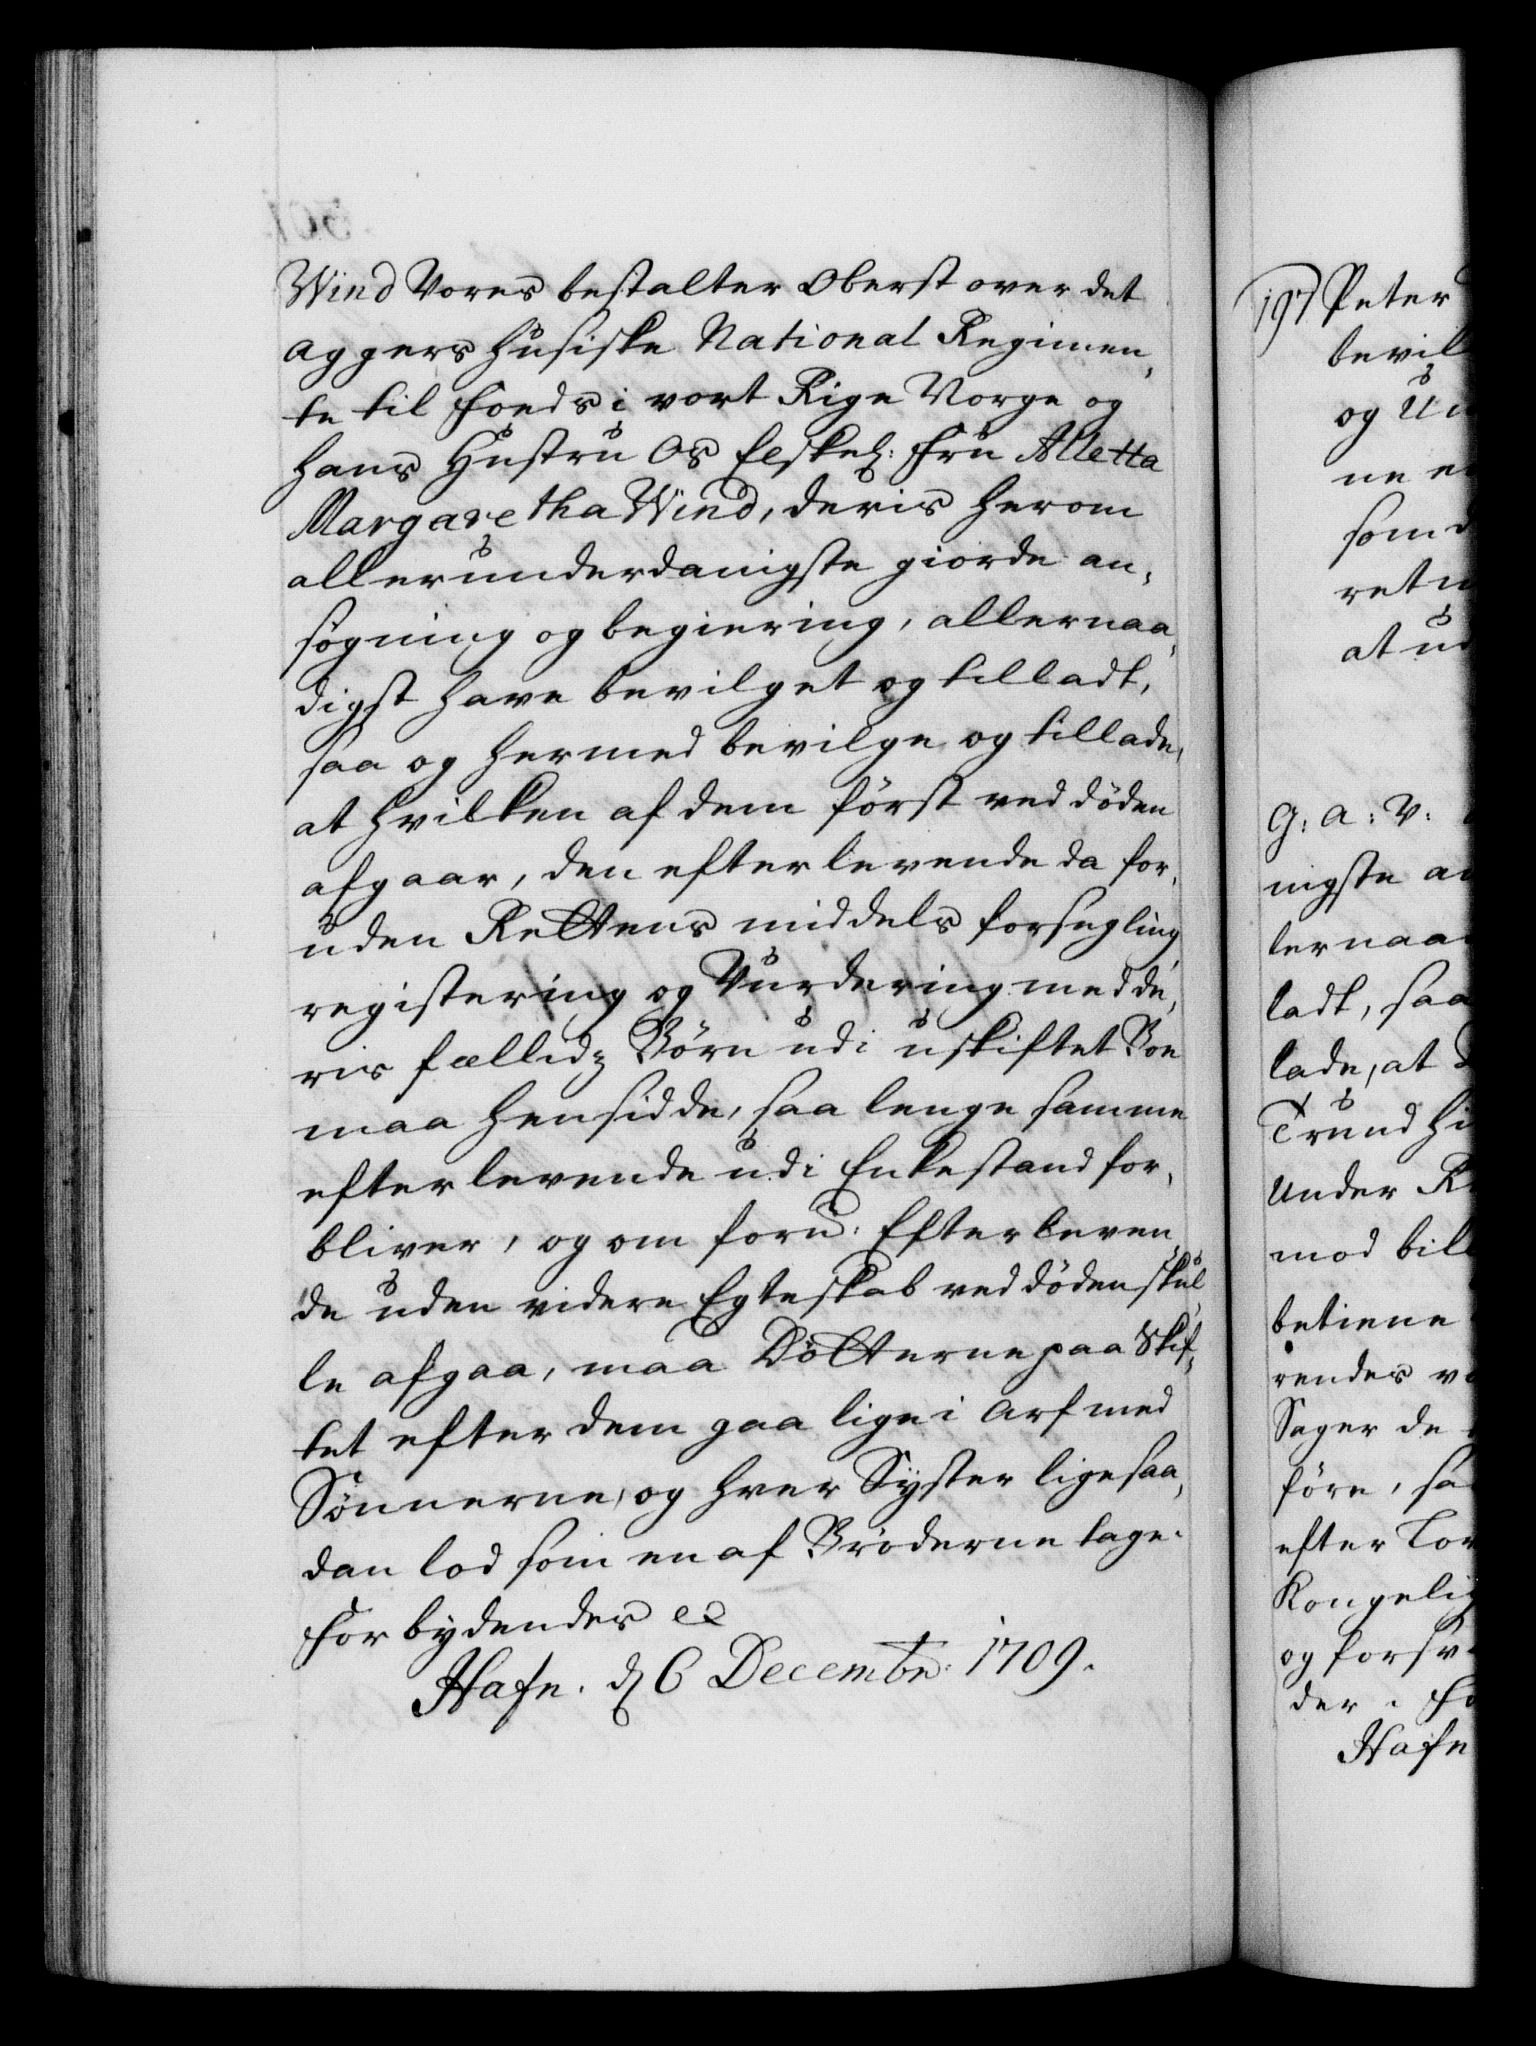 Wind Vores bestalter Oberst over det
Aggershusiske National Regimen,
te til Foeds i vort Rige Norge og
hans Hustru Os Elskel: Fru Alletta
Margaretha Wind, deris herom
allerunderdanigste giorde an,
søgning og begiering, allernaa,
digst have bevilget og tilladt,
saa og hermed bevilge og tillade,
at hvilken af dem først ved døden
afgaar, den efterlevende da for,
uden Rettens middels forsegling,
registering og Vurdering med de,
ris fællidz Børn udi uskiftet Boe
maa hensidde, saa lenge samme
efterlevende udi Enkestand for,
bliver, og om foru: Efterleven,
de uden videre Egteskab ved døden skul,
le afgaa, maa Døtterne paa Skif,
tet efter dem gaa lige i Arf med
Sønnerne, og hver Syster lige saa,
dan lod som en af Brøderne tage.
Forbydendes etc
Hafn. d 6 Decembr: 1709.
197 Peter
bevil
og Un
ne e
som d
ret
at ud
G: A: V:
nigste an
lernaa
ladt, saa
lade, at
Trund Hi
Under R
mod bill
betiene
rendes v
Sager de
føre, sa
efter Lov
Kongelig
og forsv
der. Fo
Hafn